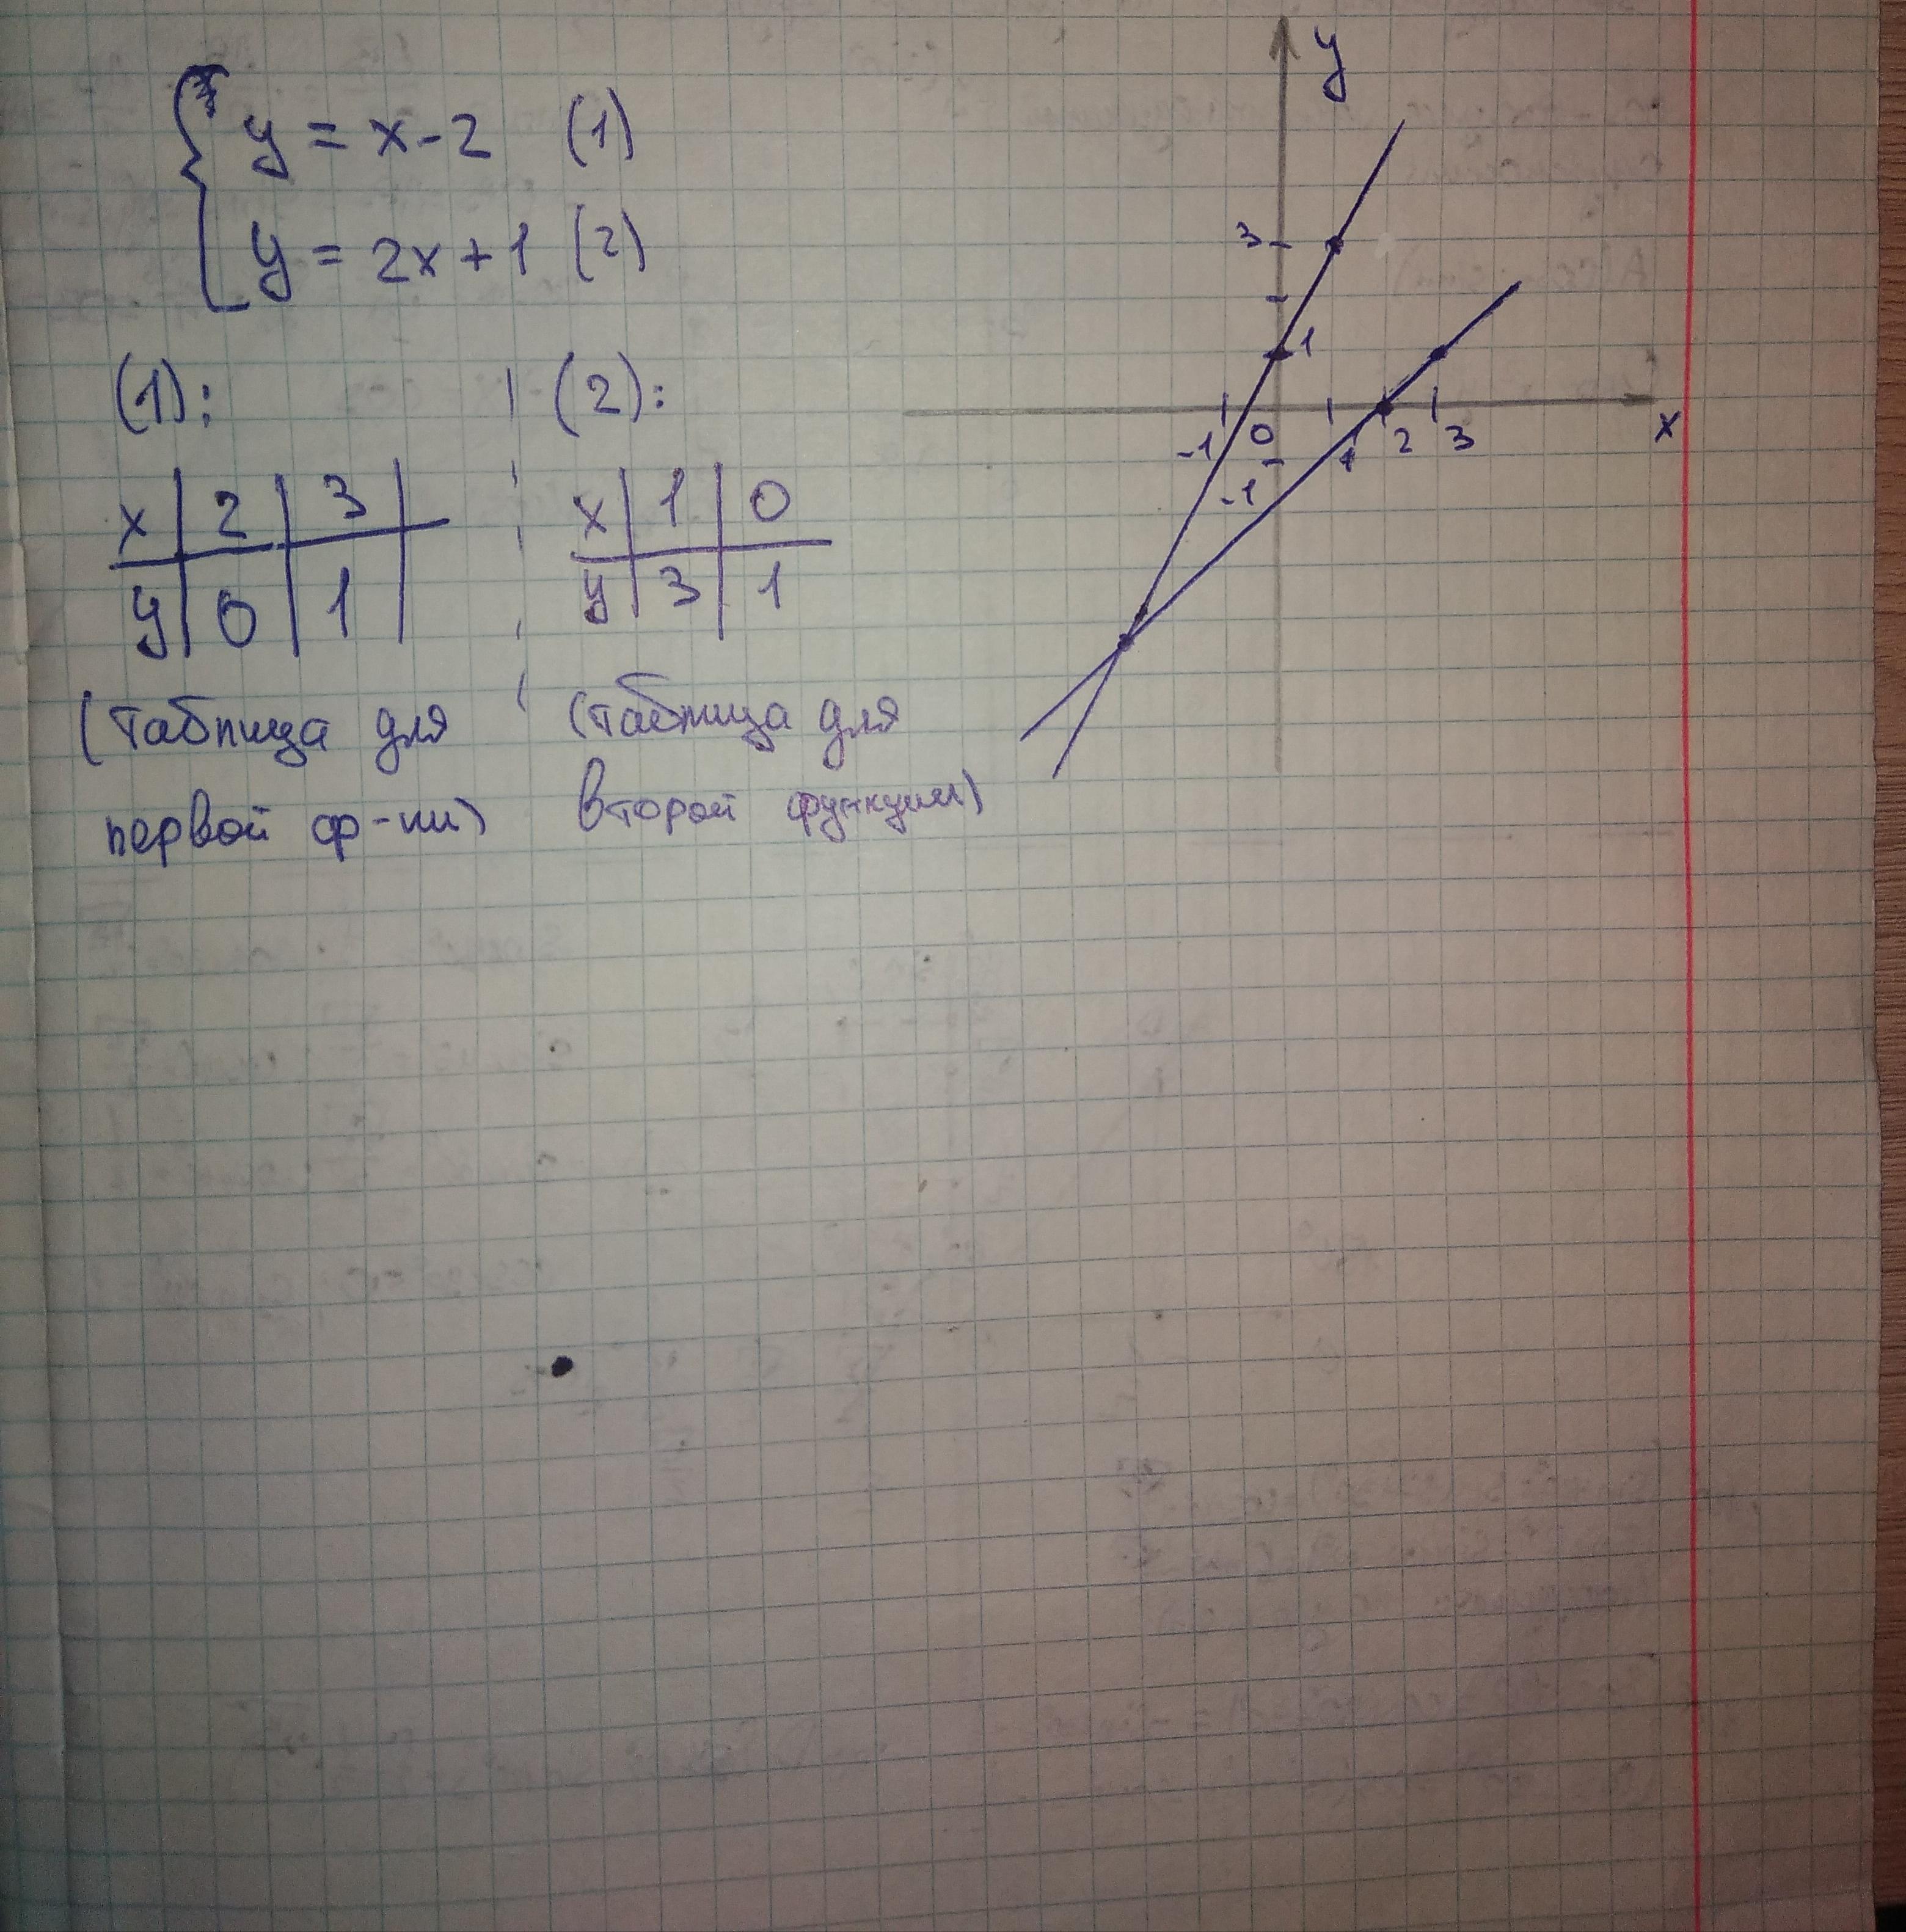 y = x-2 (1)
y = 2x+1 (2)
(1):
x 2 3
y 0 1
(таблица для
первой ф-ии)
(2):
x 1 0
y 3 1
(таблица для
второй функции)
y
3
1
-1 0 1 2 3 x
-1